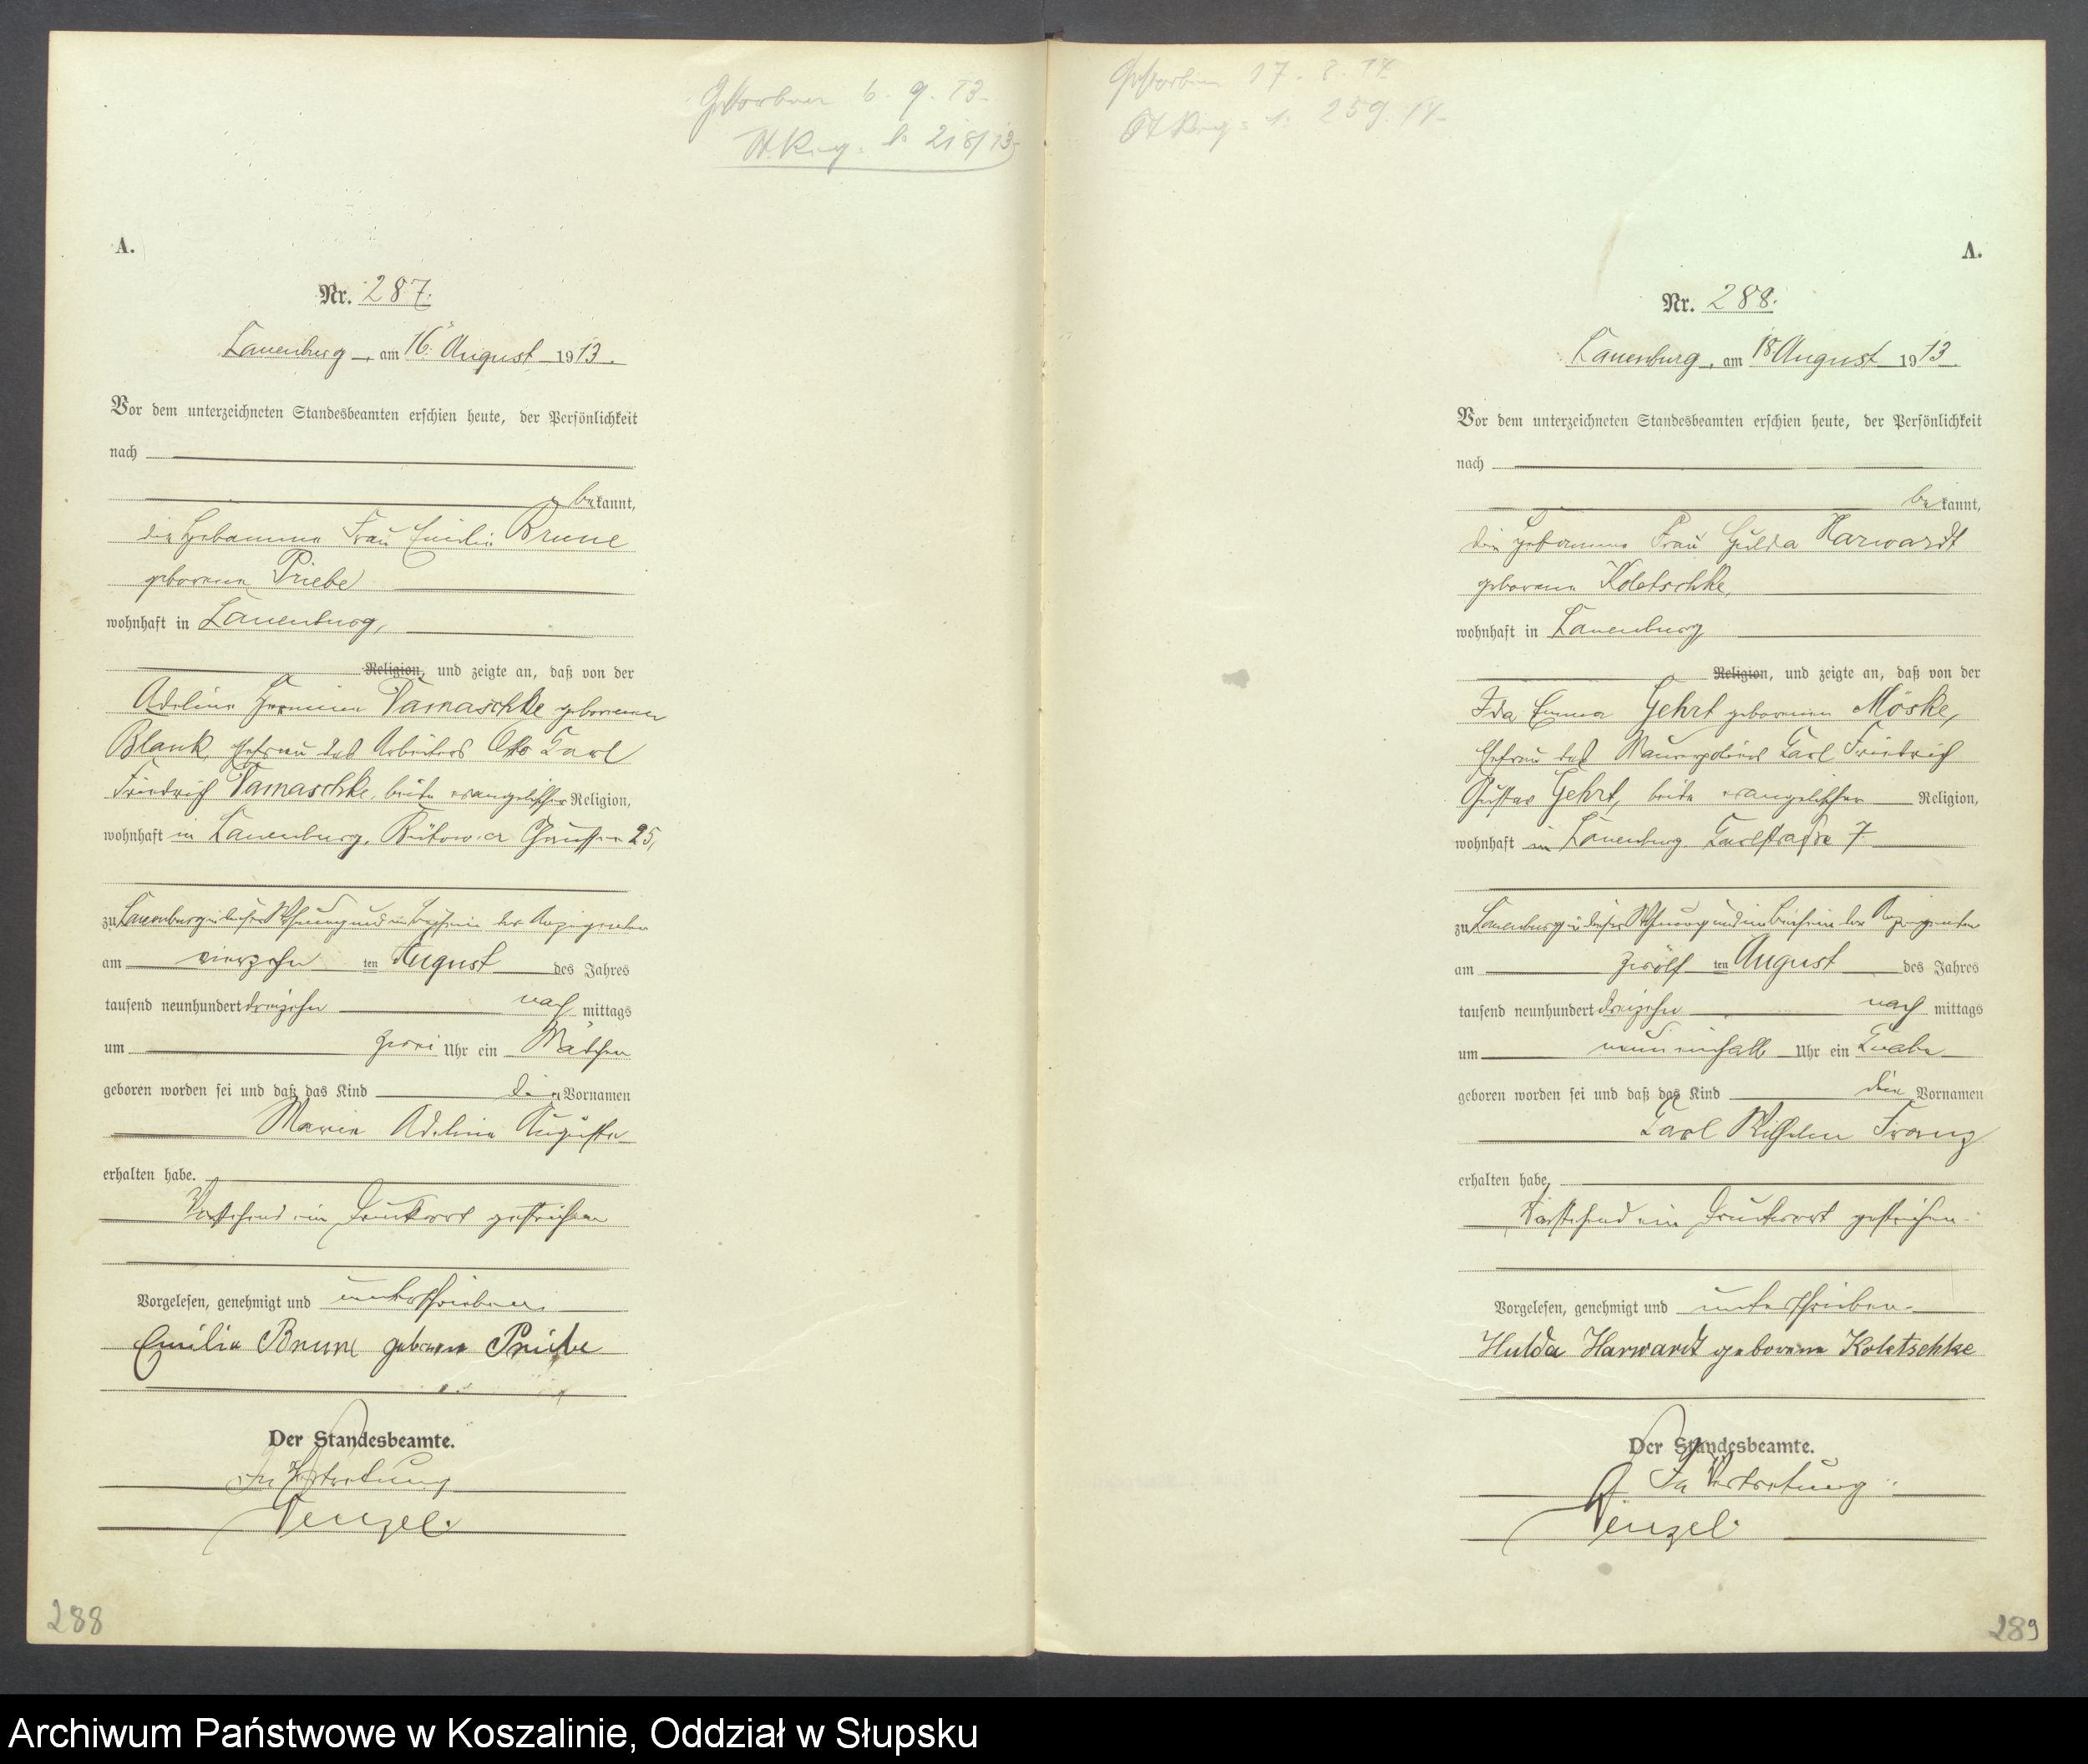 Gestorben 6. 9. 13.
St. Reg. № 218/13
A.
Nr. 287.
Lauenburg, am 16. August 1913.
Vor dem unterzeichneten Standesbeamten erschien heute, der Persönlichkeit
nach
bekannt,
die Hebamme Frau Emilie Brune
geborene Priebe
wohnhaft in Lauenburg,
Religion, und zeigte an, daß von der
Adeline Hermine Tamaschke geborenen
Blank, Ehefrau des Arbeiters Otto Carl
Friedrich Tamaschke, beide evangelischer Religion,
wohnhaft in Lauenburg, Bütower Chaussee 25,
zu Lauenburg in dieser Wohnung und in Beisein der Anzeigenden
am vierzehn ten August des Jahres
tausend neunhundert dreizehn nach mittags
um zwei Uhr ein Mädchen
geboren worden sei und daß das Kind die Vornamen
Marie Adeline Auguste
erhalten habe.
Vorstehend ein Druckwort gestrichen
Vorgelesen, genehmigt und unterschrieben
Emilie Brune geborene Priebe
Der Standesbeamte.
In Vertretung
Wenzel.
288
Gestorben 17. 8. 14
St Reg: № 259.14
A.
Nr. 288.
Lauenburg, am 18. August 1913.
Vor dem unterzeichneten Standesbeamten erschien heute, der Persönlichkeit
nach
bekannt,
die Hebamme Frau Hulda Harwardt
geborene Koletschke,
wohnhaft in Lauenburg
Religion, und zeigte an, daß von der
Ida Emma Gehrt geborenen Möske,
Ehefrau des Maurerpoliers Carl Friedrich
Gustav Gehrt, beide evangelischer Religion,
wohnhaft in Lauenburg Carlstraße 7
zu Lauenburg in dieser Wohnung und im Beisein der Anzeigenden
am zwölf ten August des Jahres
tausend neunhundert dreizehn nach mittags
um neuneinhalb Uhr ein Knabe
geboren worden sei und daß das Kind die Vornamen
Carl Wilhelm Franz
erhalten habe.
Vorstehend ein Druckwort gestrichen.
Vorgelesen, genehmigt und unterschrieben.
Hulda Harwardt geborene Koletschke
Der Standesbeamte.
In Vertretung:
Wenzel.
289
Archiwum Państwowe w Koszalinie, Oddział w Słupsku